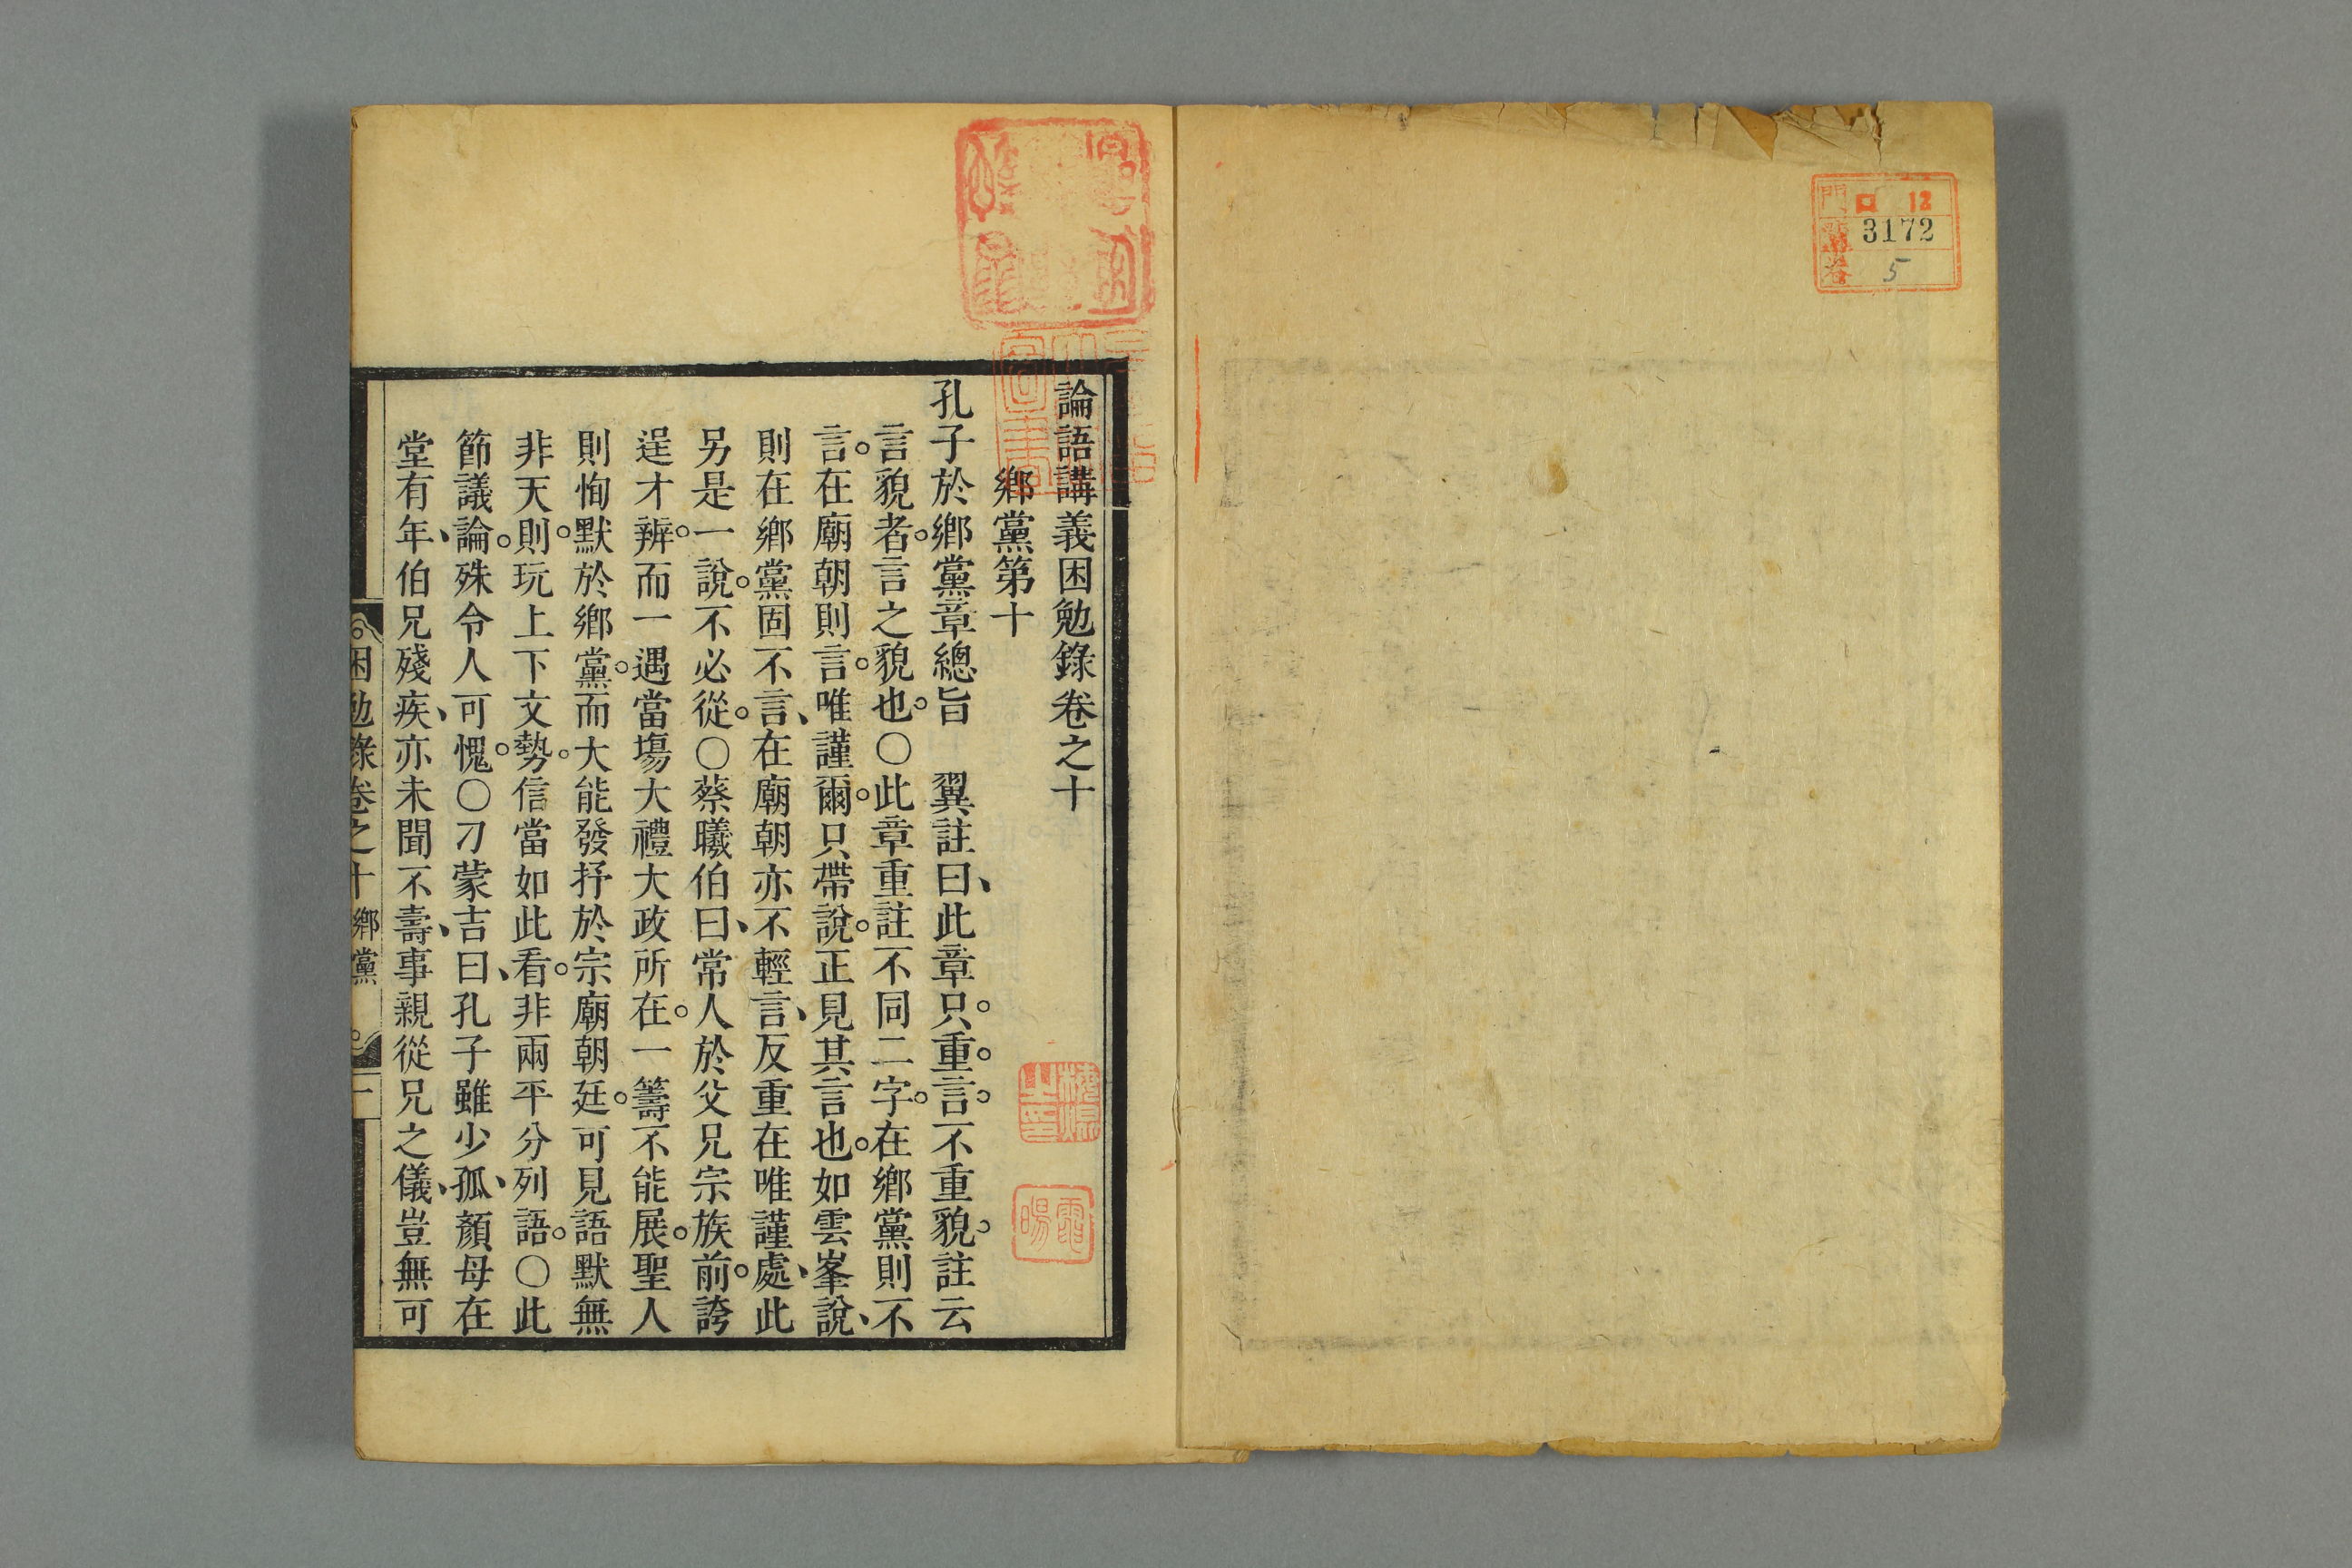 門 ロ 12
號 3172
卷 5
論語講義困勉錄卷之十
鄉黨第十
孔子於鄉黨章總旨　翼註曰、此章只。重。言不重貌註云
言貌者。言之貌也。〇此章重註不同二字。在鄉黨則不
言。在廟朝則言。唯謹爾。只帶說。正見其言也。如雲峯說、
則在鄉黨固不言、在廟朝亦不輕言、反重在唯謹處、此
另是一說。不必從。〇蔡曦伯曰、常人於父兄宗族前。誇
逞才辨。而一遇當塲大禮大政所在。一籌不能展。聖人
則恂默於鄉黨。而大能發抒於宗廟朝廷。可見語默無
非天則。玩上下文勢。信當如此看。非兩平分列語。〇此
節議論。殊令人可愧。〇刁蒙吉曰、孔子雖少孤、顏母在
堂有年、伯兄殘疾、亦未聞不壽、事親從兄之儀、豈無可
困勉錄卷之十 鄉黨 一